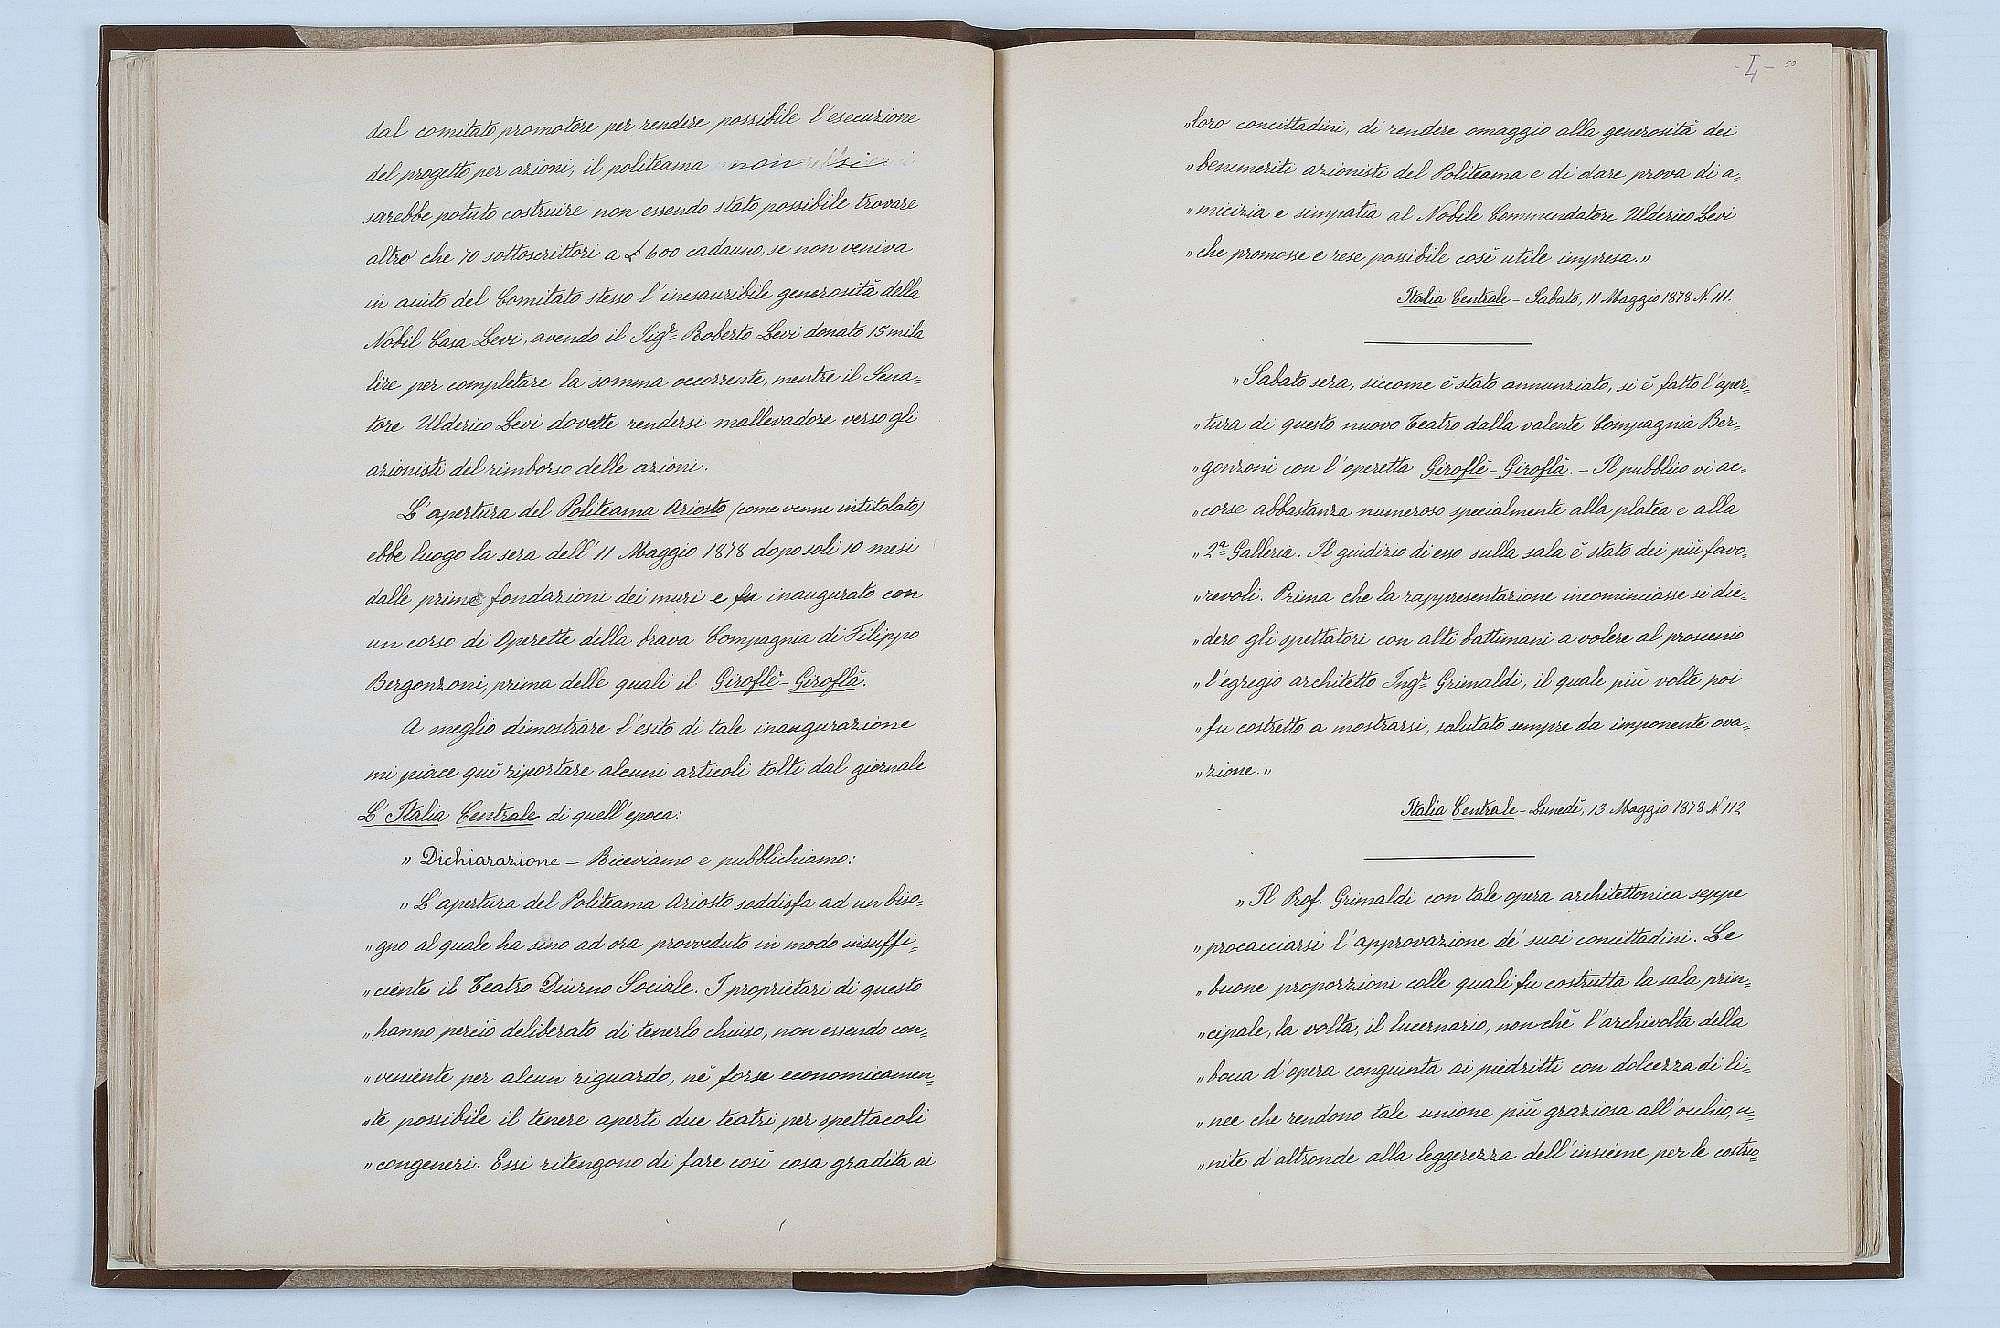 dal comitato promotore per rendere possibile l'esecuzione
del progetto per azioni, il politeama non si
sarebbe potuto costruire non essendo stato possibile trovare
altro che 70 sottoscrittori a £ 600 cadauno, se non veniva
in aiuto del Comitato stesso l'inesauribile generosità della
Nobil Casa Levi, avendo il Sigr. Roberto Levi donato 15 mila
lire per completare la somma occorrente, mentre il Sena=
tore Ulderico Levi dovette rendersi mallevadore verso gli
azionisti del rimborso delle azioni.
L'apertura del Politeama Ariosto (come venne intitolato)
ebbe luogo la sera dell'11 Maggio 1878 dopo soli 10 mesi
dalle prime fondazioni dei muri e fu inaugurato con
un corso di Operette della brava Compagnia di Filippo
Bergonzoni, prima delle quali il Giroflè-Giroflà.
A meglio dimostrare l'esito di tale inaugurazione
mi piace quì riportare alcuni articoli tolti dal giornale
L'Italia Centrale di quell'epoca:
" Dichiarazione – Riceviamo e pubblichiamo:
" L'apertura del Politeama Ariosto soddisfa ad un biso=
"gno al quale ha sino ad ora provveduto in modo insuffi=
"ciente il Teatro Diurno Sociale. I proprietari di questo
"hanno perciò deliberato di tenerlo chiuso, non essendo con=
"veniente per alcun riguardo, nè forse economicamen=
"te possibile il tenere aperti due teatri per spettacoli
"congeneri. Essi ritengono di fare così cosa gradita ai
-4- 50
"loro concittadini, di rendere omaggio alla generosità dei
"benemeriti azionisti del Politeama e di dare prova di a=
"micizia e simpatia al Nobile Commendatore Ulderico Levi
"che promosse e rese possibile così utile impresa."
Italia Centrale – Sabato, 11 Maggio 1878 N. 111.
" Sabato sera, siccome è stato annunziato, si è fatto l'aper=
"tura di questo nuovo Teatro dalla valente Compagnia Ber=
"gonzoni con l'operetta Giroflè-Giroflà. – Il pubblico vi ac=
"corse abbastanza numeroso specialmente alla platea e alla
"2ª Galleria. Il giudizio di esso sulla sala è stato dei più favo=
"revoli. Prima che la rappresentazione incominciasse si die=
"dero gli spettatori con alti battimani a volere al proscenio
"l'egregio architetto Ingr. Grimaldi, il quale più volte poi
"fu costretto a mostrarsi, salutato sempre da imponente ova=
"zione."
Italia Centrale – Lunedì, 13 Maggio 1878 N. 112
" Il Prof. Grimaldi con tale opera architettonica seppe
"procacciarsi l'approvazione de' suoi concittadini. Le
"buone proporzioni colle quali fu costrutta la sala prin=
"cipale, la volta, il lucernario, non chè l'archivolta della
"bocca d'opera congiunta ai piedritti con dolcezza di li=
"nee che rendono tale unione più graziosa all'occhio, u=
"nite d'altronde alla leggerezza dell'insieme per le costru=